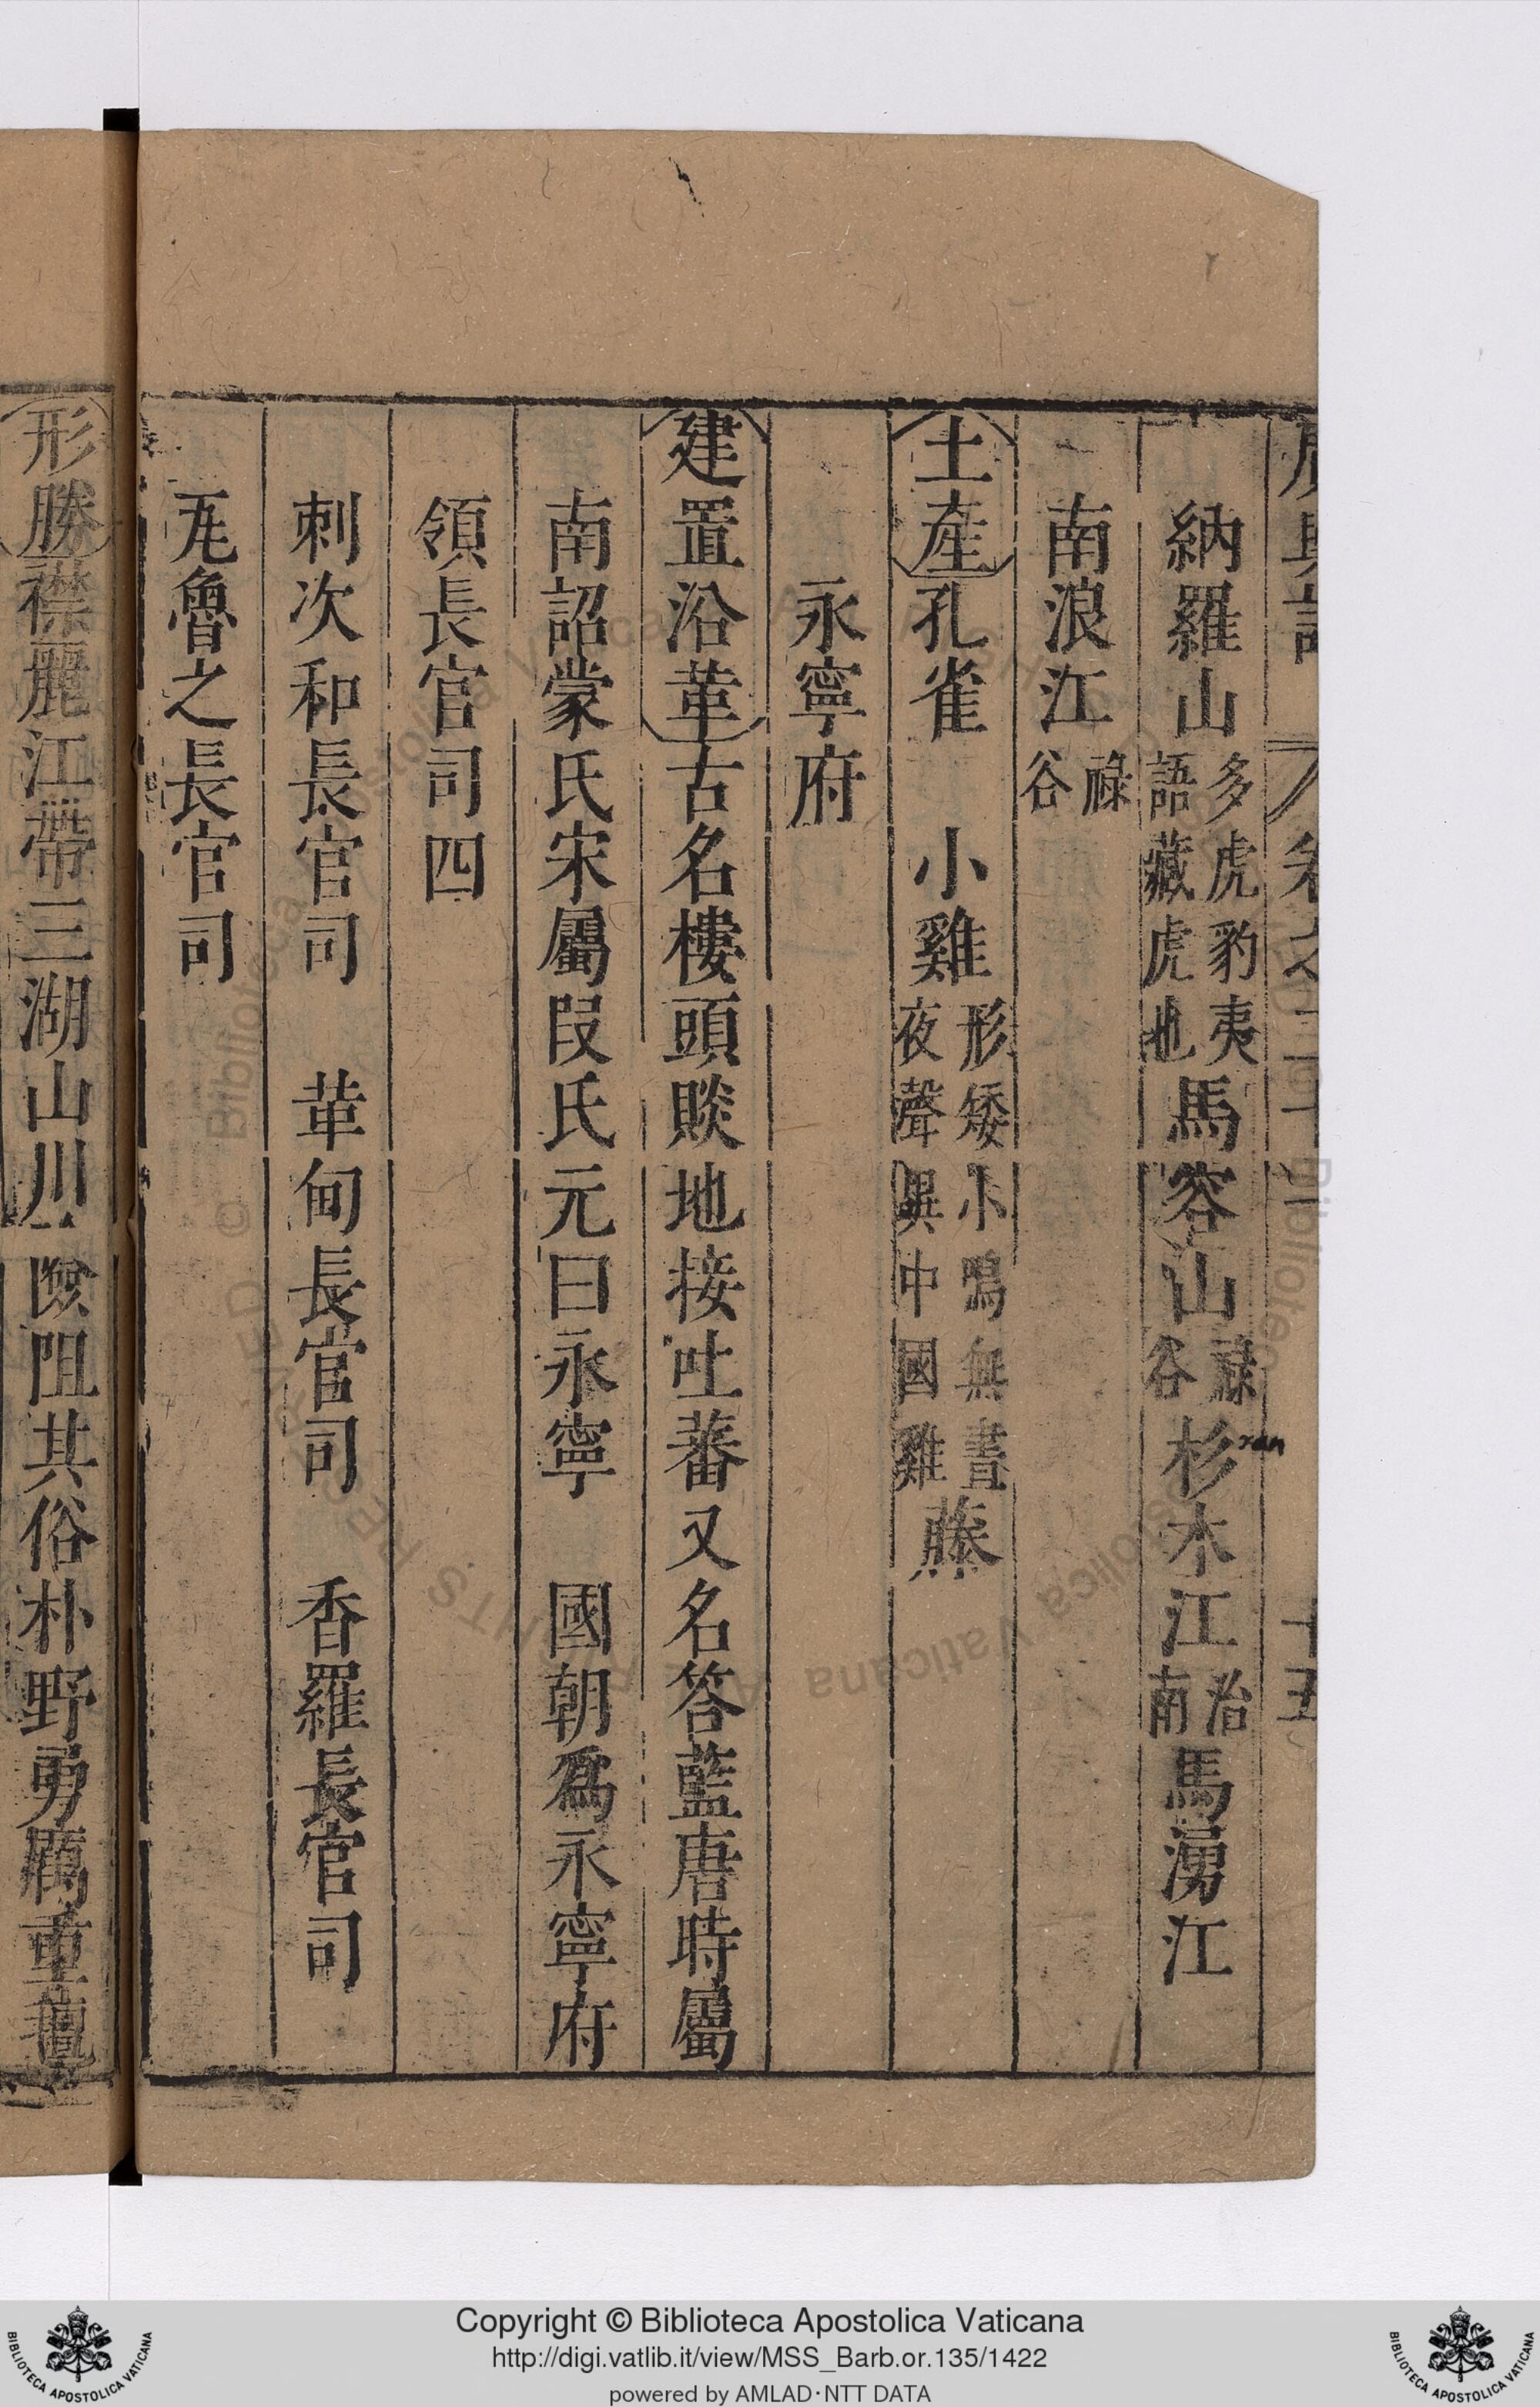 納羅山多虎豹夷語藏虎也馬容山祿谷杉木江治南馬湧江
xan
南浪江祿谷
土產孔雀 小雞形矮小鳴無晝夜聲與中國雞藤
永寧府
建置沿革古名樓頭賧地接吐蕃又名答藍唐時屬
南詔蒙氏宋屬段氏元曰永寧 國朝爲永寧府
領長官司四
剌次和長官司 革甸長官司 香羅長官司
瓦魯之長官司
形勝襟麗江帶三湖山川險阻其俗朴野勇厲重氊
Copyright © Biblioteca Apostolica Vaticana
http://digi.vatlib.it/view/MSS_Barb.or.135/1422
powered by AMLAD·NTT DATA
BIBLIOTECA APOSTOLICA VATICANA
BIBLIOTECA APOSTOLICA VATICANA